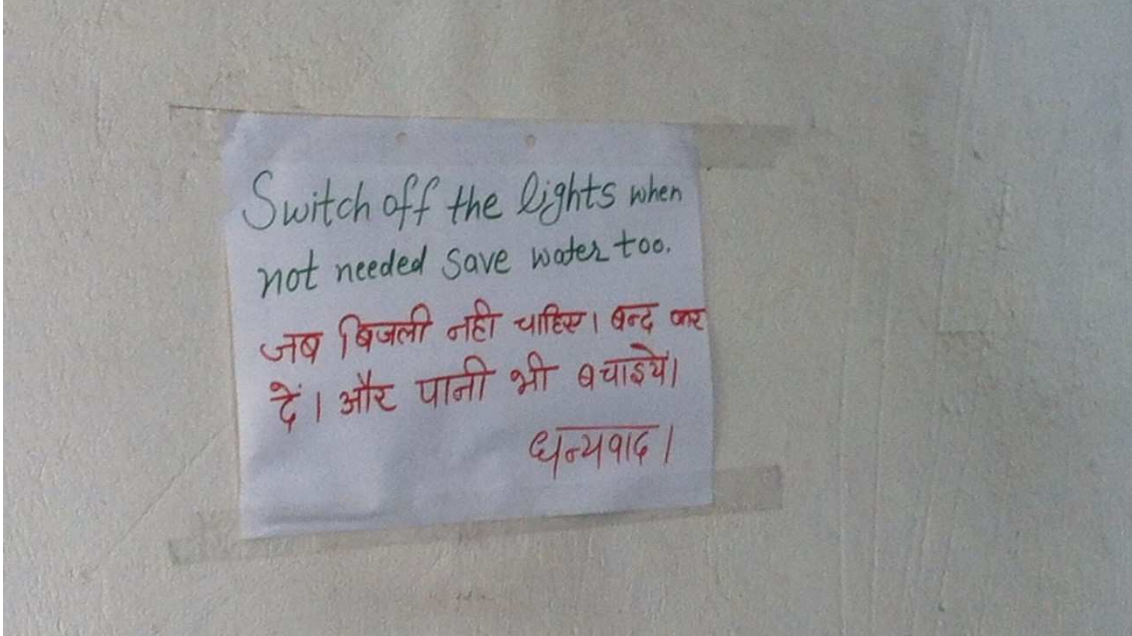 Switch off the lights when
not needed save water too.
जब बिजली नही चाहिए। बन्द कर
दें। और पानी भी बचाइये।
धन्यवाद।